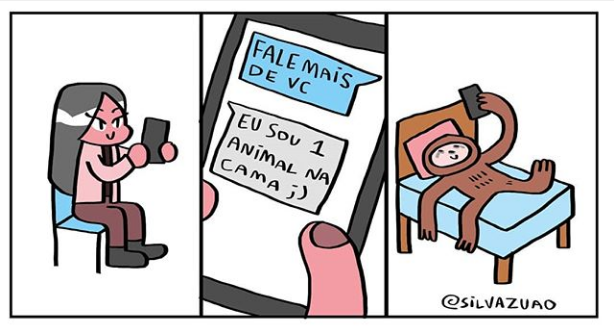 FALE MAIS
DE VC
EU SOU 1
ANIMAL NA
CAMA ;)
@SILVAZUAO